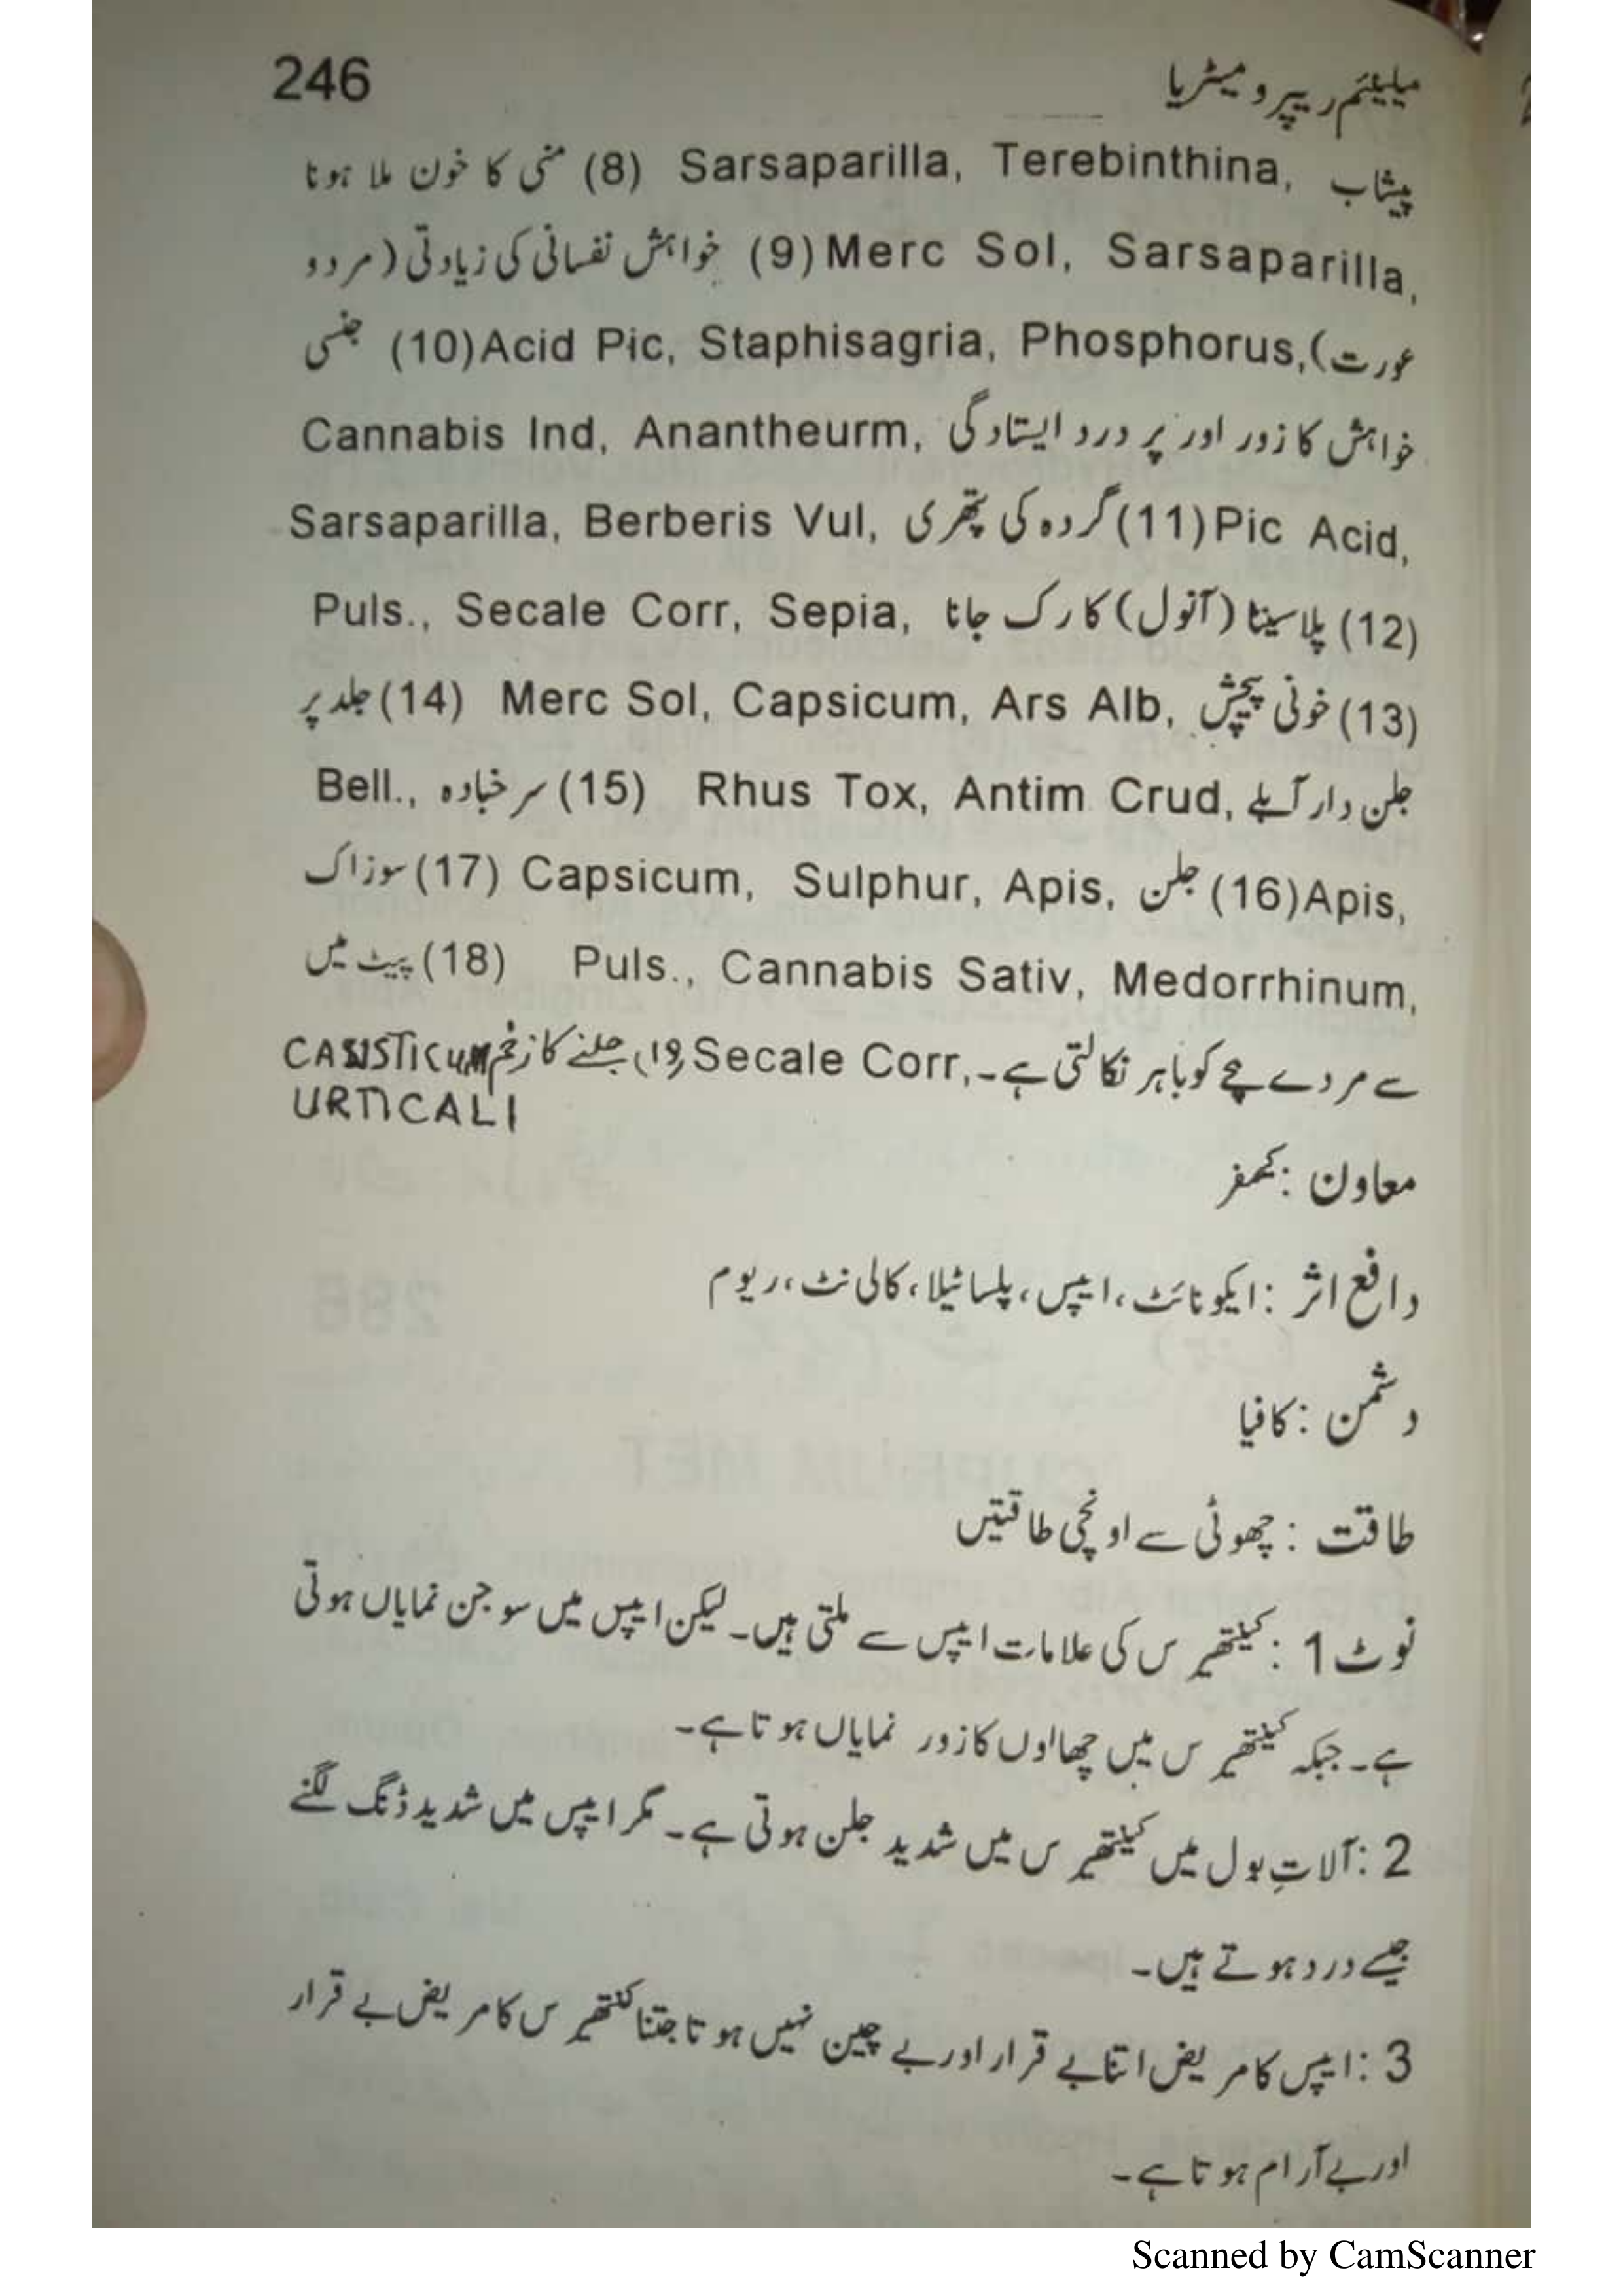 246 میلینئم ریپرو میٹریا
پیشاب Sarsaparilla, Terebinthina, (8) منی کا خون ملا ہونا
Merc Sol, Sarsaparilla, (9) خواہش نفسانی کی زیادتی (مرد و
عورت) Acid Pic, Staphisagria, Phosphorus, (10) جنسی
خواہش کا زور اور پر درد ایستادگی Cannabis Ind, Anantheurm,
Pic Acid, (11) گردہ کی پتھری Sarsaparilla, Berberis Vul,
(12) پلاسینٹا (آنول) کا رک جانا Puls., Secale Corr, Sepia,
(13) خونی پیچش Merc Sol, Capsicum, Ars Alb, (14) جلد پر
جلن دار آبلے Rhus Tox, Antim Crud, (15) سرخبادہ Bell.,
Apis, (16) جلن Capsicum, Sulphur, Apis, (17) سوزاک
Puls., Cannabis Sativ, Medorrhinum, (18) پیٹ میں
سے مردے بچے کو باہر نکالتی ہے۔ Secale Corr, (19) جلنے کا زخم CASISTICUM
URTICALI
معاون : کیمفر
دافع اثر : ایکونائٹ، ایپس، پلساٹیلا، کالی نٹ، ریوم
دشمن : کافیا
طاقت : چھوٹی سے اونچی طاقتیں
نوٹ 1 : کینتھیرس کی علامات ایپس سے ملتی ہیں۔ لیکن ایپس میں سوجن نمایاں ہوتی
ہے۔ جبکہ کینتھیرس میں چھالوں کا زور نمایاں ہوتا ہے۔
2 : آلاتِ بول میں کینتھیرس میں شدید جلن ہوتی ہے۔ مگر ایپس میں شدید ڈنگ لگنے
جیسے درد ہوتے ہیں۔
3 : ایپس کا مریض اتنا بے قرار اور بے چین نہیں ہوتا جتنا کنتھیرس کا مریض بے قرار
اور بے آرام ہوتا ہے۔
Scanned by CamScanner